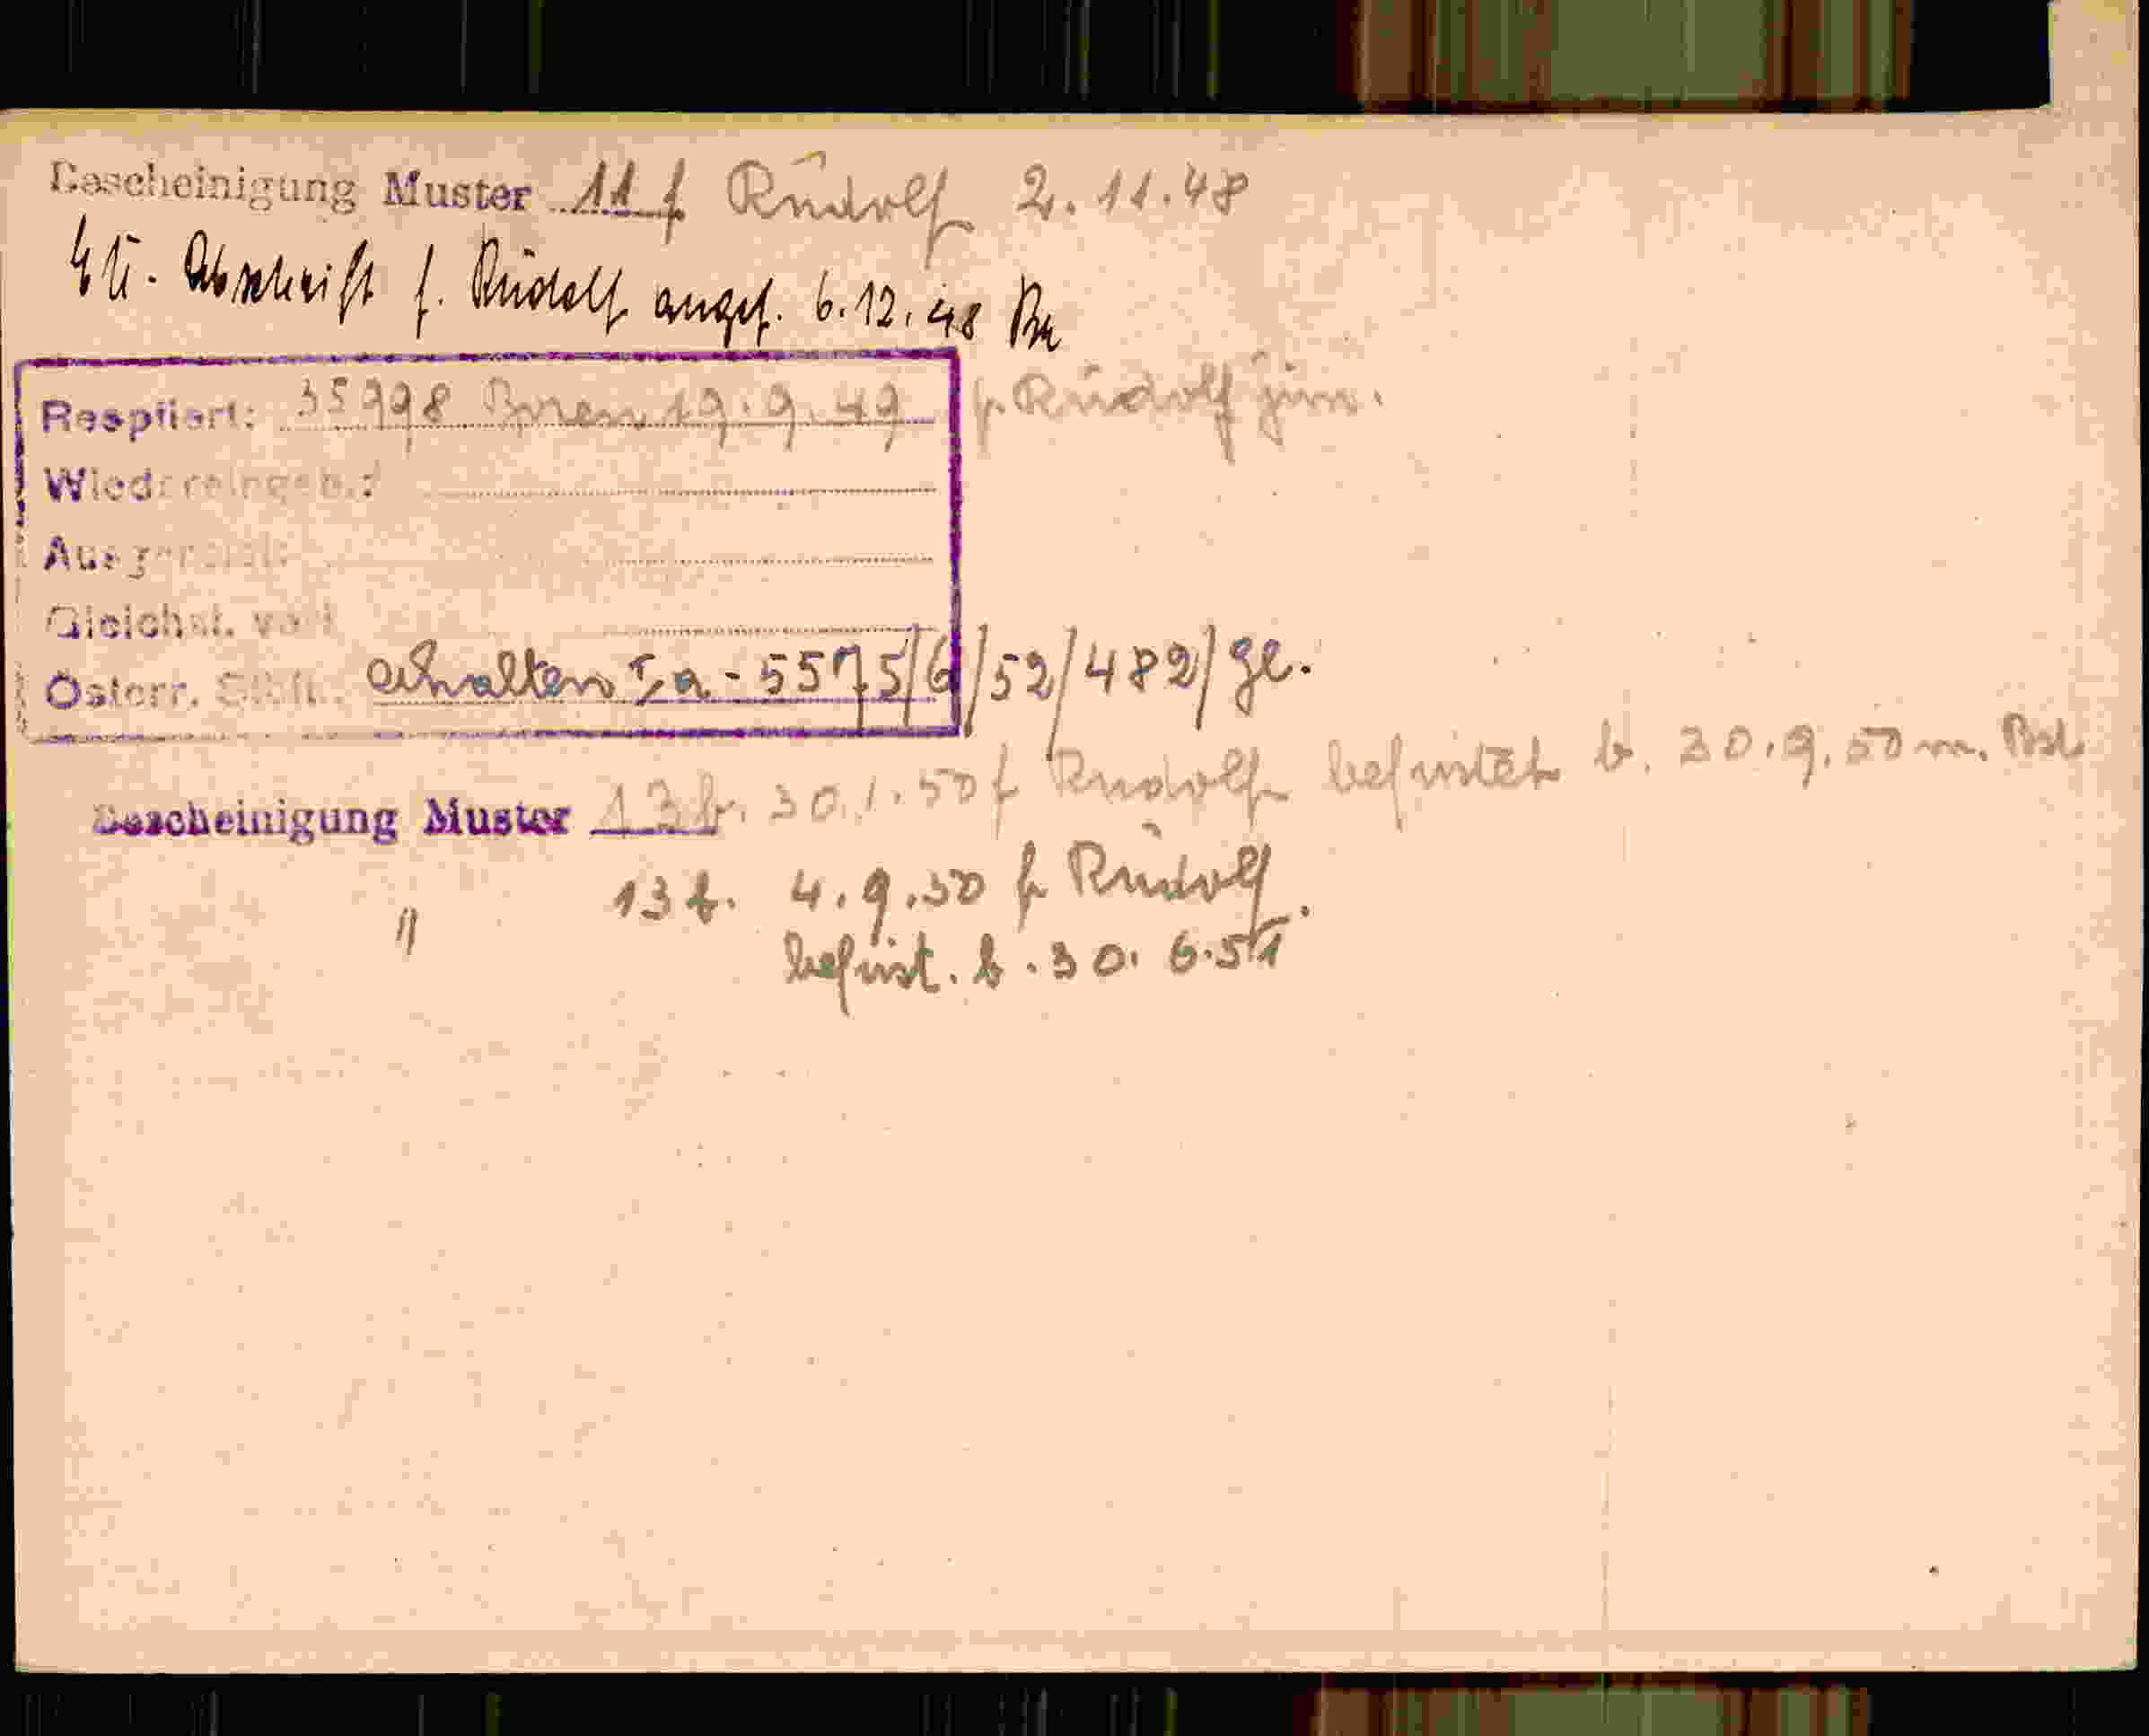 Bescheinigung Muster 11 f Rudolf 2.11.48
Abschrift f. Rudolf angef. 6.12.48
Respiiert: 35998 Bozen 19.9.49 f. Rudolf jun.
Wiedereingeb.:
Ausgereist:
Gleichst. von
Österr. Stbft.: erhalten Ia - 5575/6/52/482/ge.
Bescheinigung Muster 13 b. 30.1.50 f Rudolf befristet b. 30.9.50 m.
" 13 b. 4.9.50 f Rudolf.
befrist. b. 30.6.51